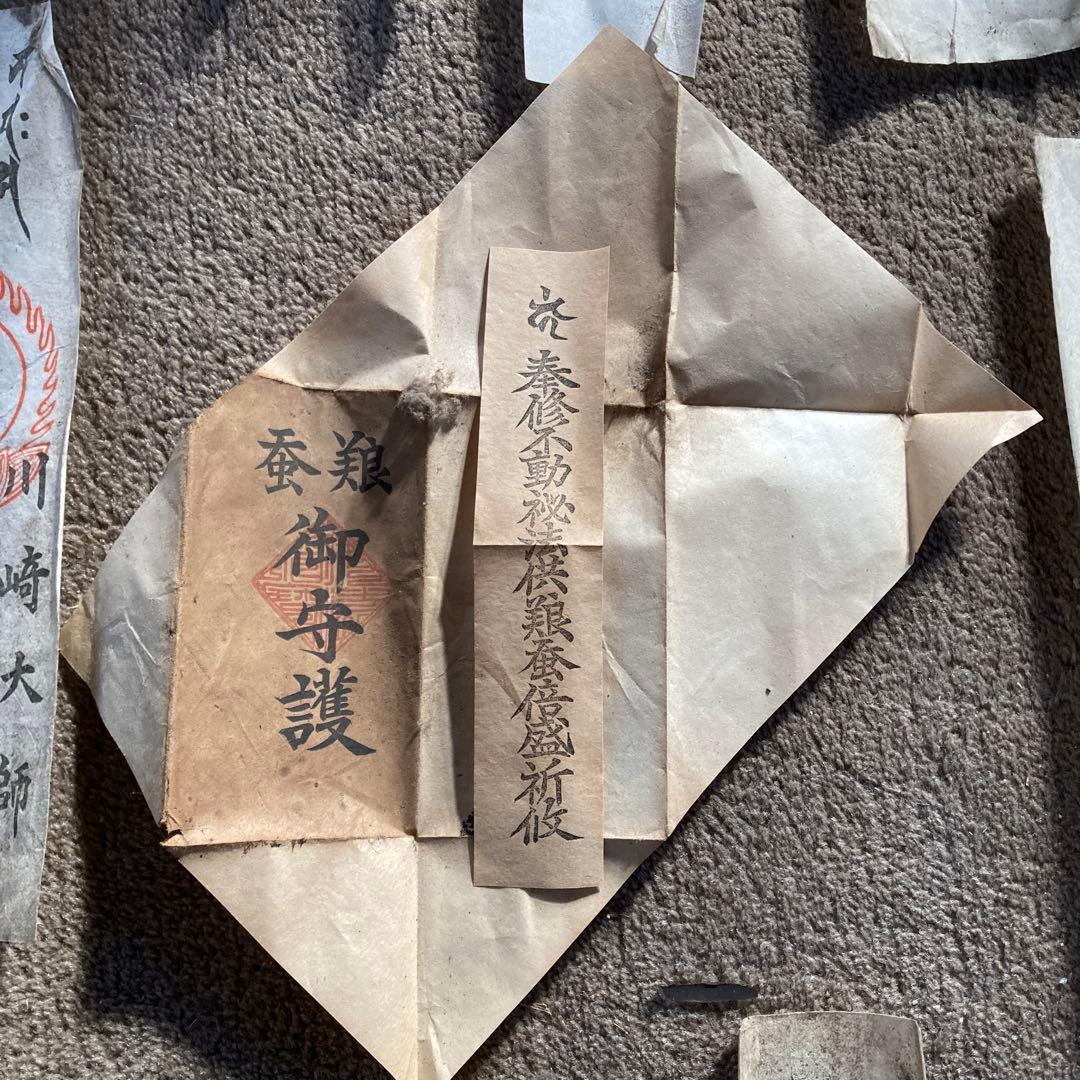 奉修不動祕法供養蚕倍盛祈攸
養蚕
御守護
川崎大師